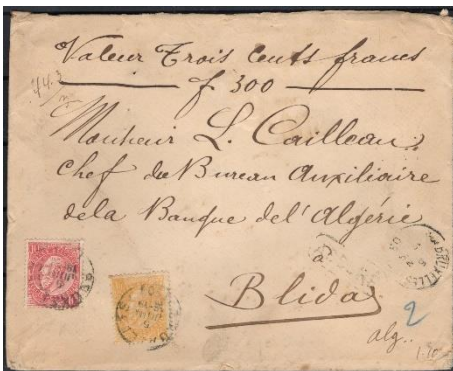 Valeur Trois cents francs
f 300
Monsieur L. Cailleau
chef du Bureau Auxiliaire
de la Banque de l'Algérie
à
Blida
alg..
2
1.70
BRUXELLES